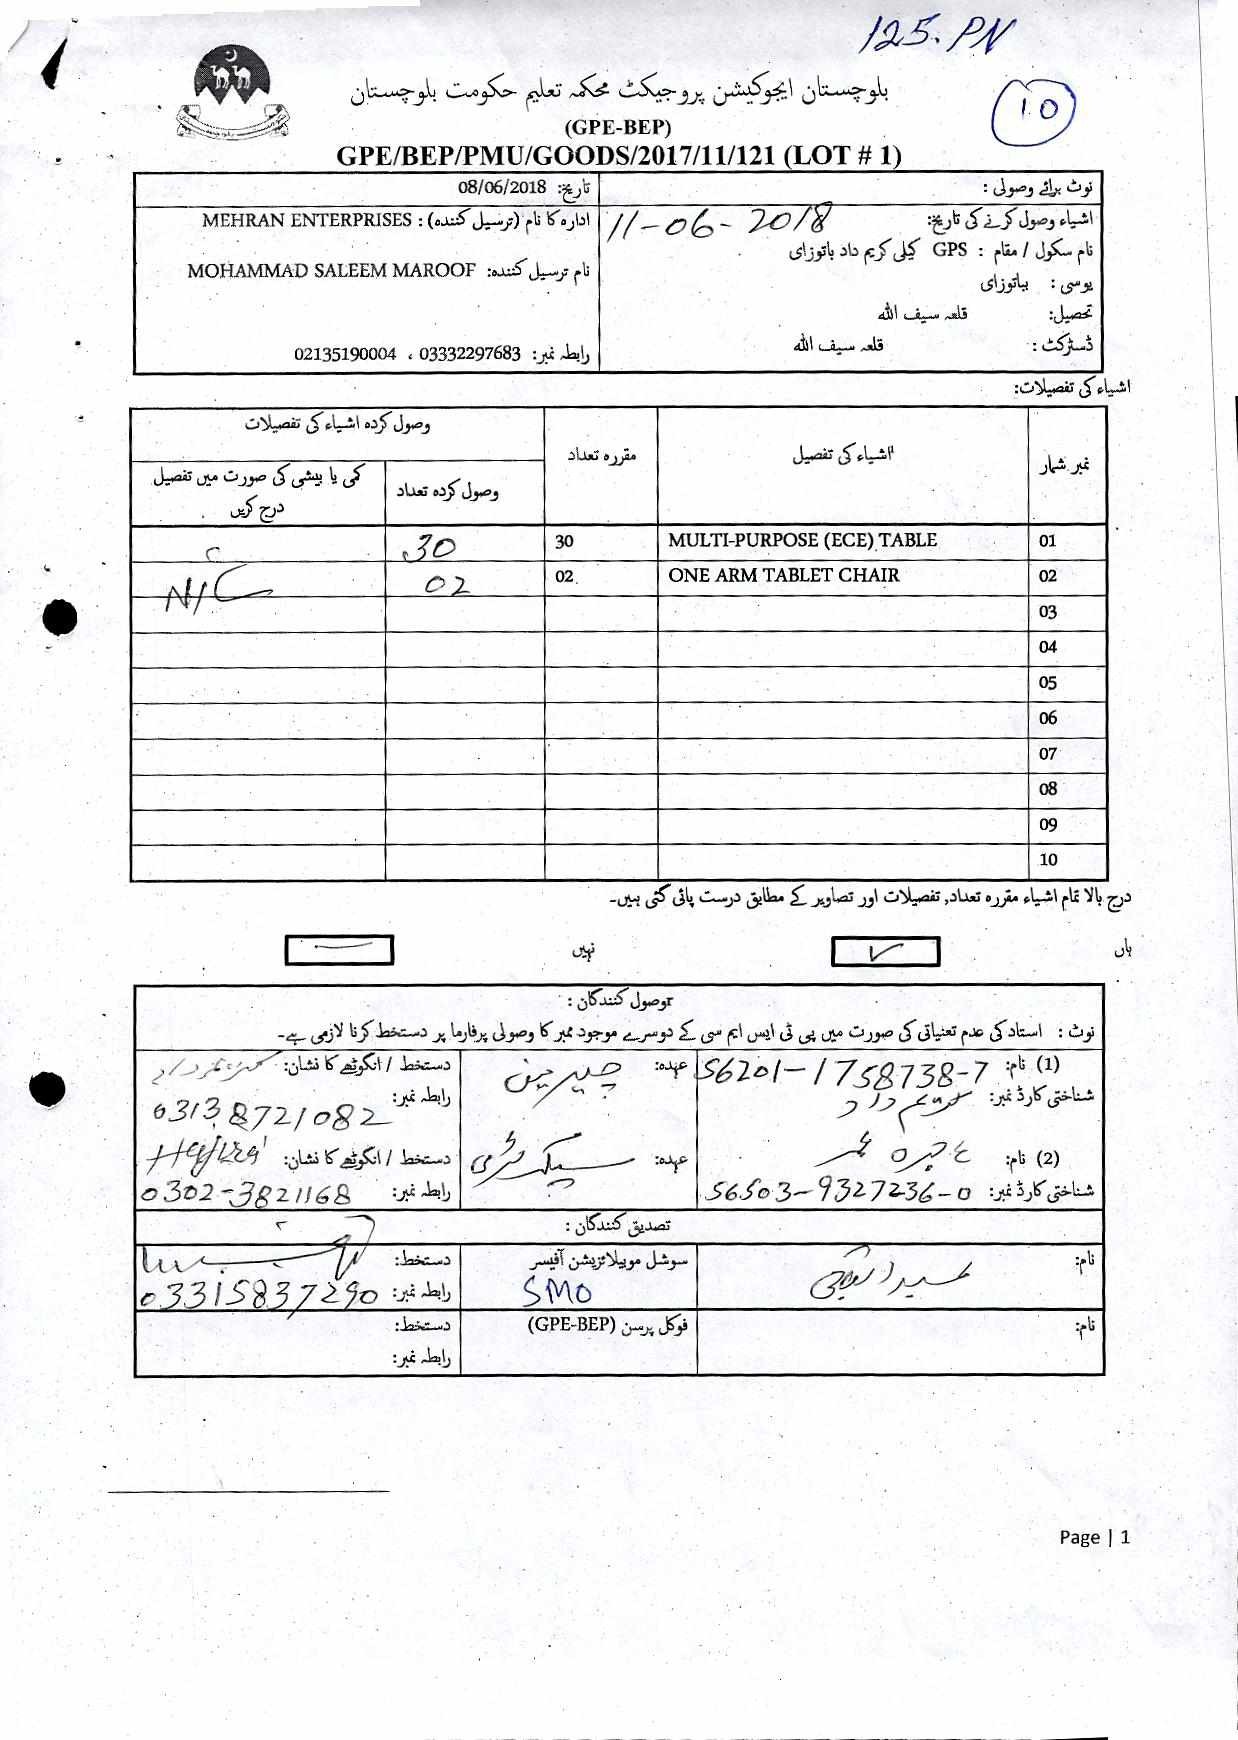 125. PN
10
بلوچستان ایجوکیشن پروجیکٹ محکمہ تعلیم حکومت بلوچستان
(GPE-BEP)
GPE/BEP/PMU/GOODS/2017/11/121 (LOT # 1)
نوٹ برائے وصولی :
تاریخ: 08/06/2018
اشیاء وصول کرنے کی تاریخ: 11-06-2018
ادارہ کا نام (ترسیل کنندہ) : MEHRAN ENTERPRISES
نام سکول / مقام : GPS کیلی کریم داد باتوزای
نام ترسیل کنندہ: MOHAMMAD SALEEM MAROOF
یوسی : باتوزای
تحصیل: قلعہ سیف اللہ
ڈسٹرکٹ : قلعہ سیف اللہ
رابطہ نمبر: 03332297683 ، 02135190004
اشیاء کی تفصیلات:
نمبر شمار اشیاء کی تفصیل مقررہ تعداد وصول کردہ اشیاء کی تفصیلات
وصول کردہ تعداد کمی یا بیشی کی صورت میں تفصیل درج کریں
01 MULTI-PURPOSE (ECE) TABLE 30 30
02 ONE ARM TABLET CHAIR 02 02
03
04
05
06
07
08
09
10
درج بالا تمام اشیاء مقررہ تعداد, تفصیلات اور تصاویر کے مطابق درست پائی گئی ہیں۔
ہاں ✓ نہیں —
وصول کنندگان :
نوٹ : استاد کی عدم تعنیاتی کی صورت میں پی ٹی ایس ایم سی کے دوسرے موجود ممبر کا وصولی پرفارما پر دستخط کرنا لازمی ہے۔
(1) نام: 56201-1758738-7 عہدہ: چیئرمین دستخط / انگوٹھے کا نشان:
شناختی کارڈ نمبر: کریم داد رابطہ نمبر: 03138721082
(2) نام: عہدہ: سیکرٹری دستخط / انگوٹھے کا نشان:
شناختی کارڈ نمبر: 56503-9327236-0 رابطہ نمبر: 0302-3821168
تصدیق کنندگان :
نام: سوشل موبیلائزیشن آفیسر دستخط:
SMO رابطہ نمبر: 03315837290
نام: فوکل پرسن (GPE-BEP) دستخط:
رابطہ نمبر:
Page | 1